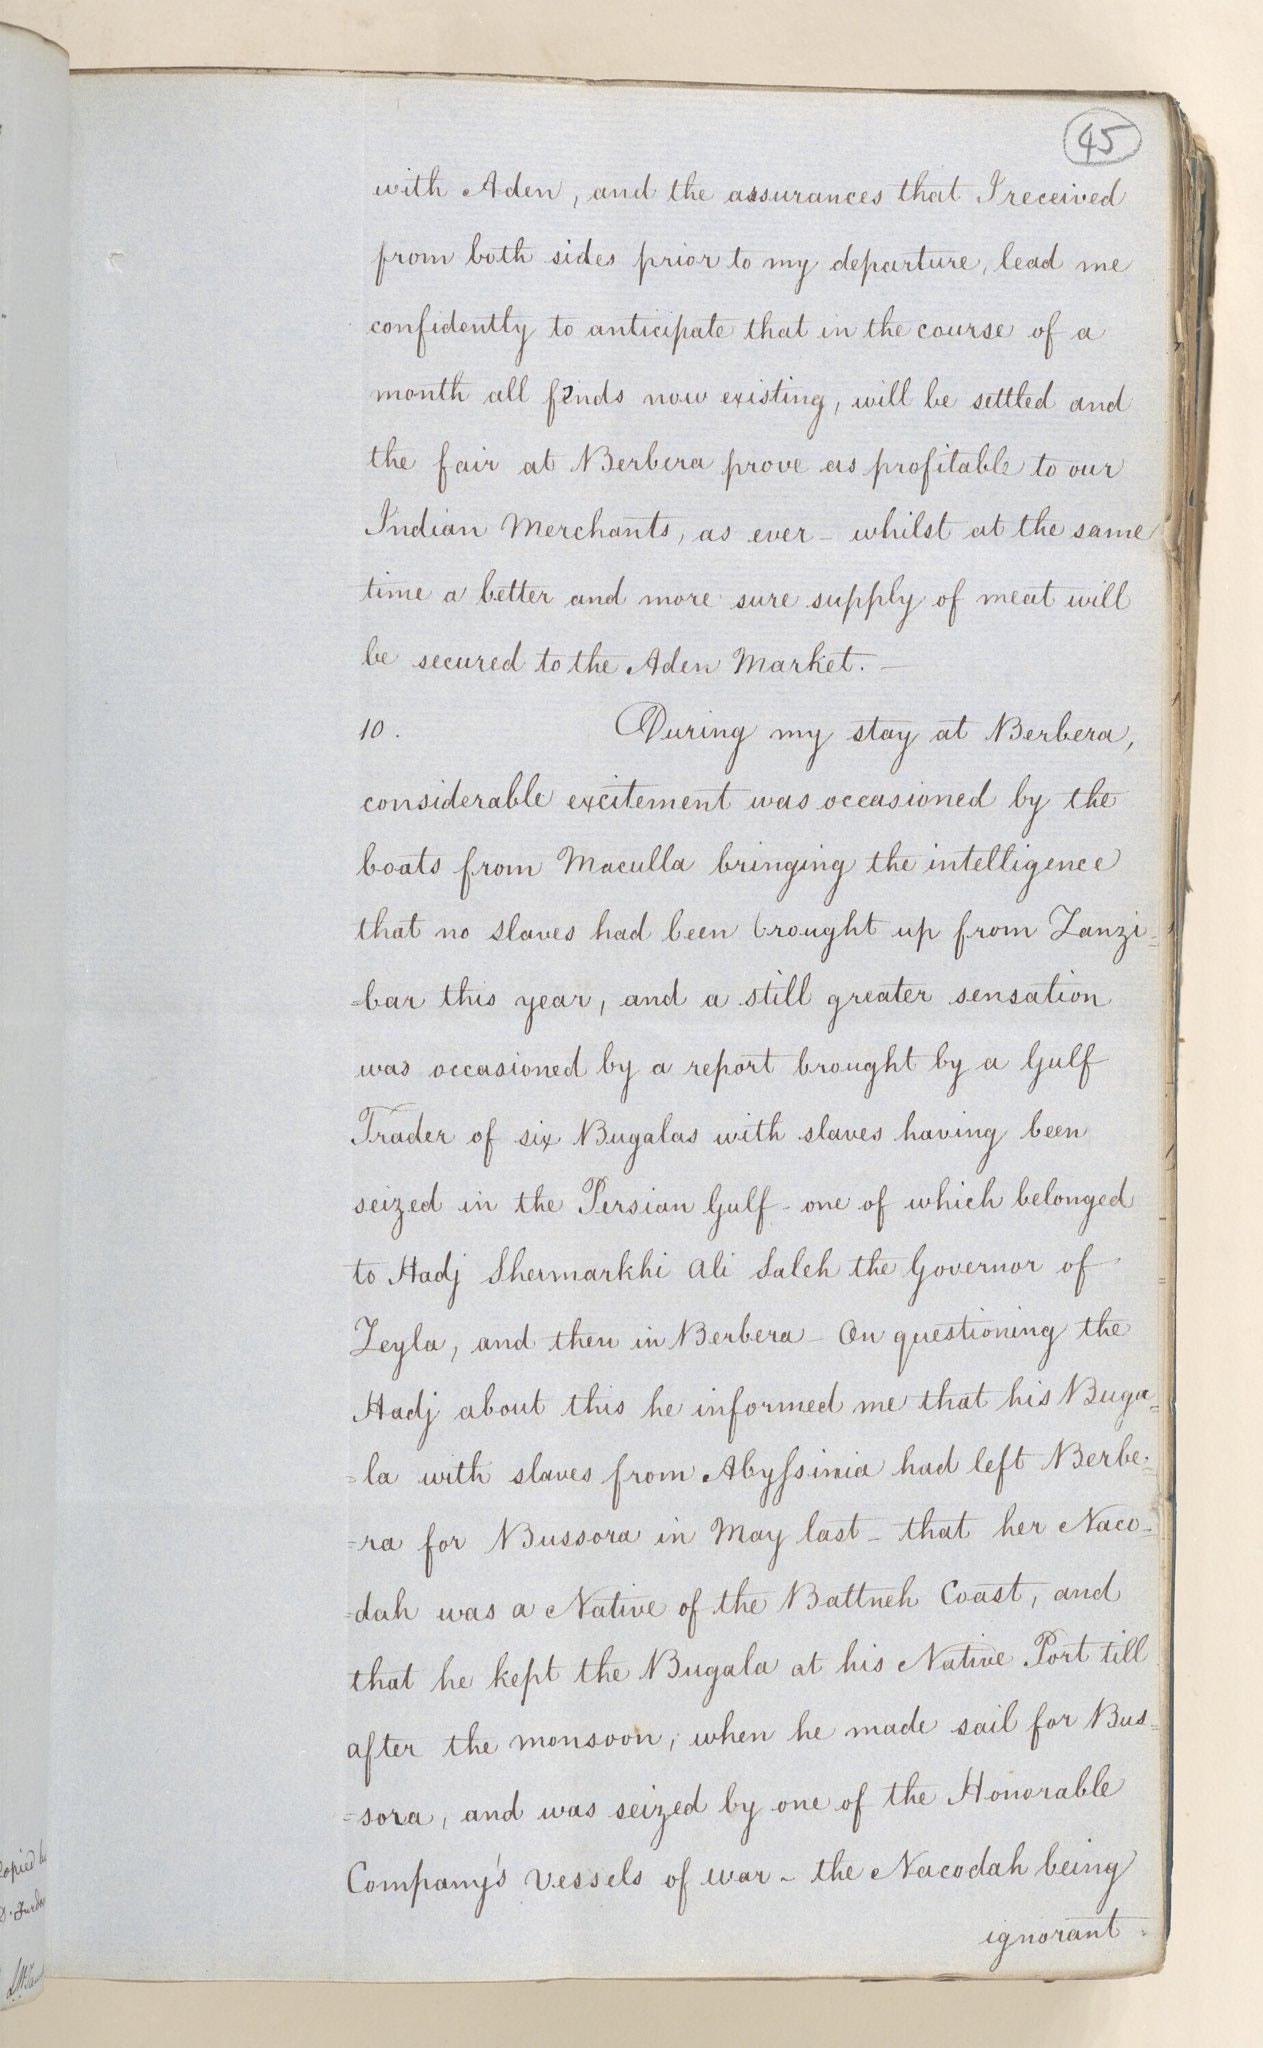 45
with Aden, and the assurances that I received
from both sides prior to my departure, lead me
confidently to anticipate that in the course of a
month all now existing, will be settled and
the fair at Berbera prove as profitable to our
Indian Merchants, as ever _ whilst at the same
time a better and more sure supply of meat will
be secured to the Aden Market. _
10. During my stay at Berbera,
considerable excitement was occasioned by the
boats from Maculla bringing the intelligence
that no slaves had been brought up from Zanzi=
=bar this year, and a still greater sensation
was occasioned by a report brought by a Gulf
Trader of six Bugalas with slaves having been
seized in the Persian Gulf _ one of which belonged
to Hadj Shermarkhi Ali Saleh the Governor of
Zeyla, and then in Berbera _ On questioning the
Hadj about this he informed me that his Buga=
=la with slaves from Abyssinia had left Berbe=
=ra for Bussora in May last _ that her Naco=
=dah was a Native of the Battneh Coast, and
that he kept the Bugala at his Native Port till
after the monsoon, when he made sail for Bus=
=sora, and was seized by one of the Honorable
Company's vessels of war _ the Nacodah being
ignorant
Copied